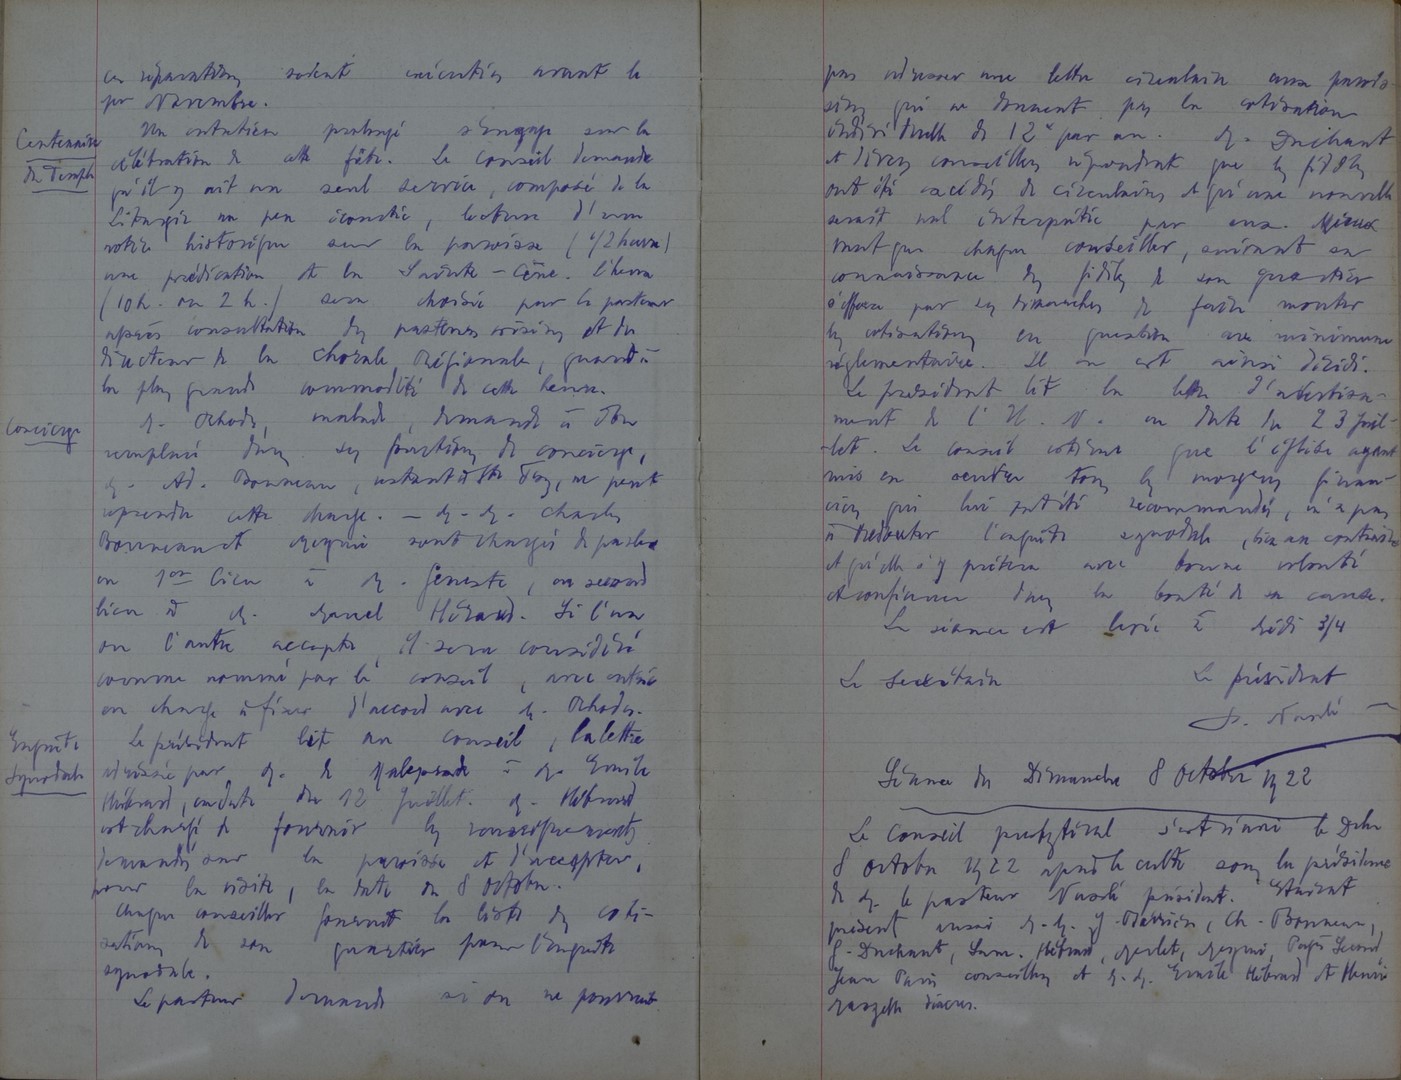 ces réparations soient exécutées avant le
1er Novembre.
Centenaire
du Temple
Un entretien prolongé s'engage sur la
célébration de cette fête. Le Conseil demande
qu'il y ait un seul service, composé de la
Liturgie un peu écourtée, lecture d'une
notice historique sur la paroisse (1/2 heure)
une prédication et la Sainte-Cène. L'heure
(10 h. ou 2 h.) sera choisie par le pasteur
après consultation des pasteurs voisins et du
directeur de la Chorale Régionale, quant à
la plus grande commodité de cette heure.
Concierge
M. Rhodes, malade, demande à être
remplacé dans ses fonctions de concierge,
M. Ad. Bonneau, étant, ne peut
reprendre cette charge. — M. M. Charles
Bonneau et sont chargés de parler
en 1er lieu à M. Geneste, en second
lieu à M. Marcel Hérard. Si l'un
ou l'autre accepte, il sera considéré
comme nommé par le conseil, avec entrée
en charge à fixer d'accord avec M. Rhodes.
Enquête
Synodale
Le président lit au conseil, la lettre
adressée par M. de Maleprade à M. Emile
Hébrard, en date du 12 Juillet. M. Hébrard
est chargé de fournir les renseignements
demandés sur la paroisse et d'accepter,
pour la visite, la date du 8 Octobre.
Chaque conseiller fournit la liste des coti-
sations de son quartier pour l'enquête
synodale.
Le pasteur demande si on ne pourrait
pas adresser une lettre circulaire aux parois-
siens qui ne donnent pas la cotisation
individuelle de 12f par an. M. Duchant
et divers conseillers répondent que les fidèles
ont été excédés de circulaires et qu'une nouvelle
serait mal interprétée par eux. Mieux
vaut que chaque conseiller, suivant sa
connaissance des fidèles de son quartier
s'efforce par ses démarches de faire monter
les cotisations en question au minimum
réglementaire. Il en est ainsi décidé.
Le président lit la lettre d'avertisse-
ment de l'U. N. en date du 23 Juil-
-let. Le conseil estime que l'église ayant
mis en œuvre tous les moyens finan-
ciers qui lui ont été recommandés, n'a pas
à redouter l'enquête synodale, bien au contraire
et qu'elle s'y prêtera avec bonne volonté
et confiance dans la bonté de sa cause.
La séance est levée à Midi 3/4
Le Secrétaire Le président
Séance du Dimanche 8 Octobre 1922
Le Conseil presbytéral s'est réuni le Dche
8 Octobre 1922 après le culte sous la présidence
de M. le pasteur président. Etaient
présents aussi M. M. J., Ch. Bonneau,
G. Duchant, Sam. Hébrard, Merlet,
Jean conseillers et M. M. Emile Hébrard et Henri
diacres.